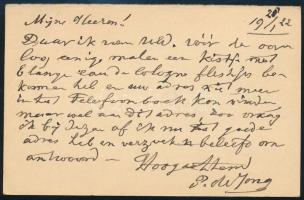 Mijne Heeren! 28/1 22
19
Daar ik van Uld. vóór de oorlog
eenig malen een kistje met
blanje eau de cologne fleschjes be-
komen heb en uw adres niet meer
in het Telefoonboek kon vinden
maar wel aan dit adres, zoo vraag
ik bij dezen of ik nu het goede
adres heb en verzoek U beleefd om
antwoord —
Hoogachtend
P. de Jong